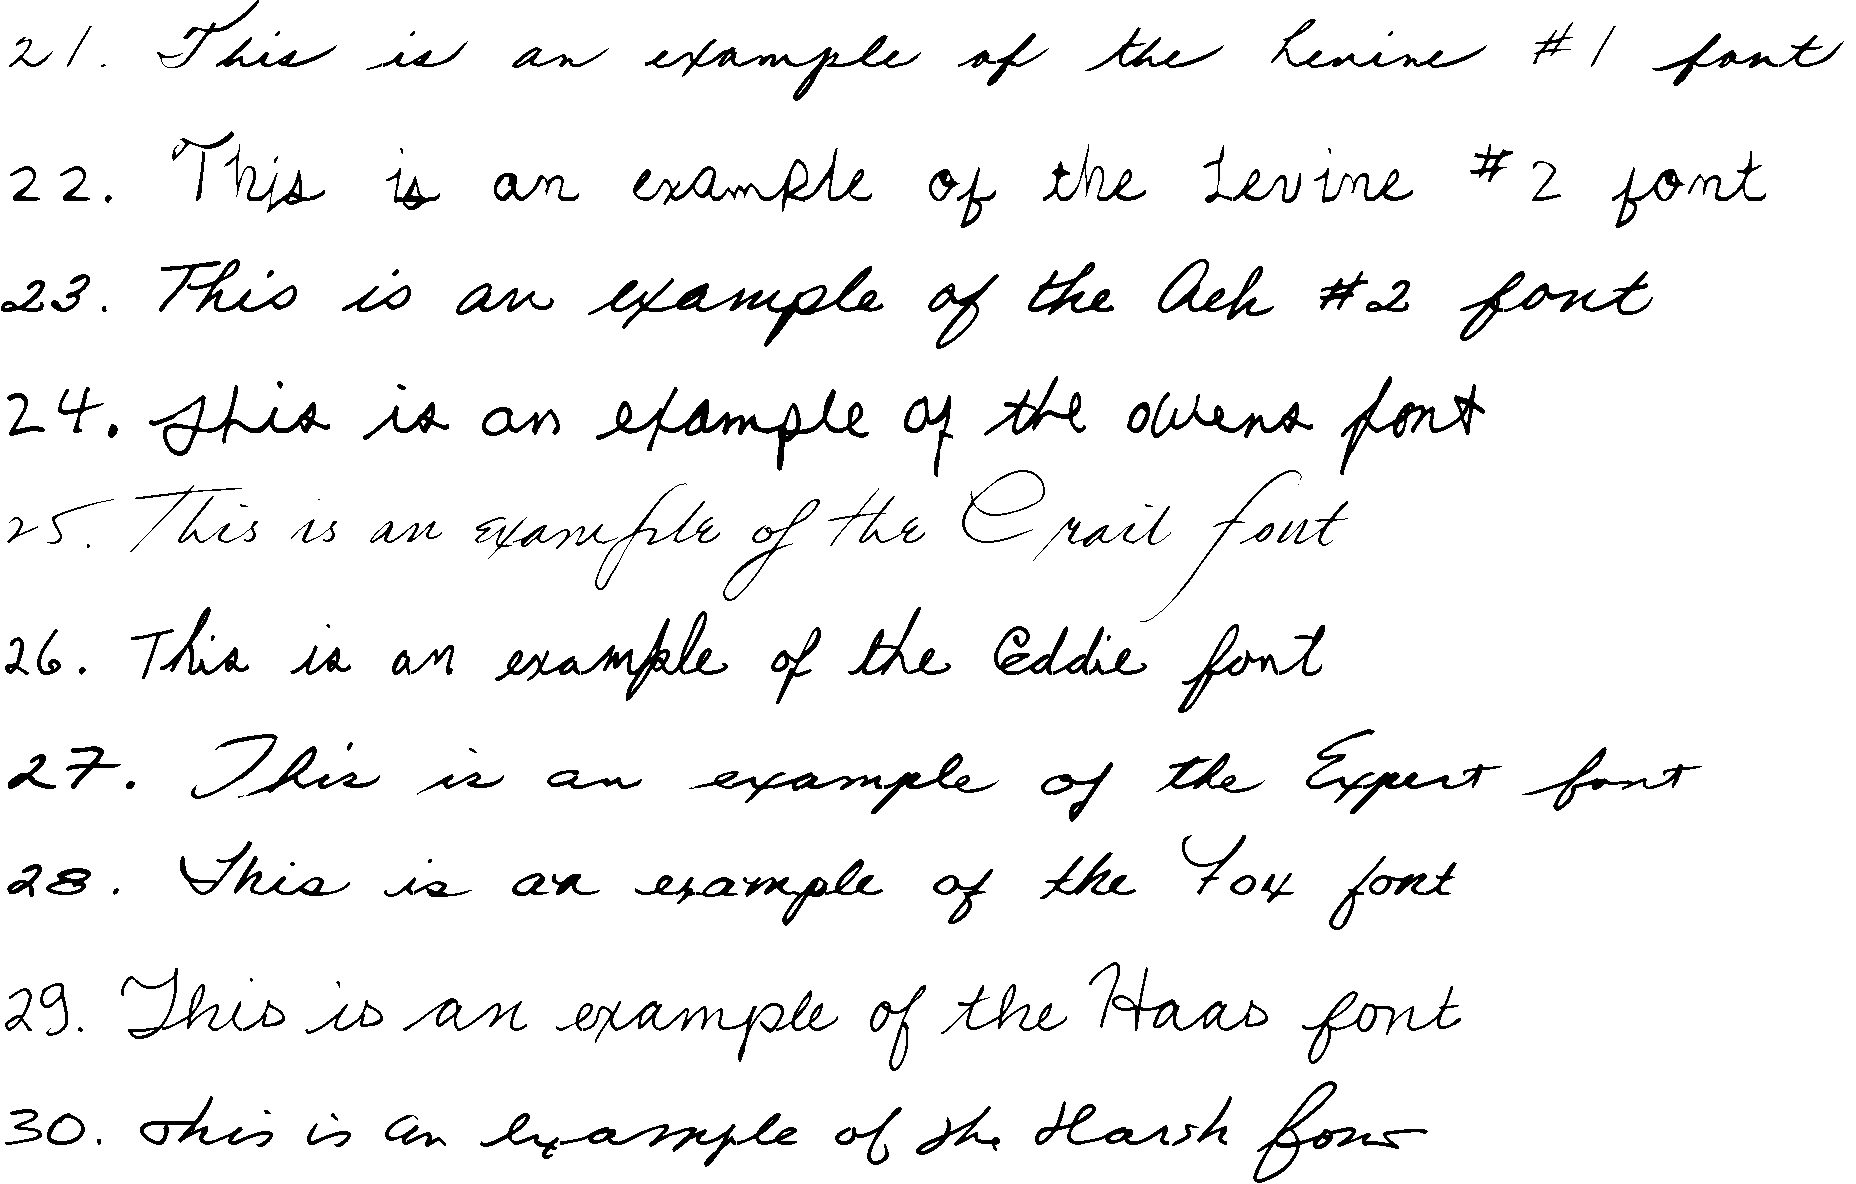 21. This is an example of the Levine #1 font
22. This is an example of the Levine #2 font
23. This is an example of the Ach #2 font
24. This is an example of the Owens font
25. This is an example of the Crail font
26. This is an example of the Eddie font
27. This is an example of the Expert font
28. This is an example of the Fox font
29. This is an example of the Haas font
30. This is an example of the Harsh font